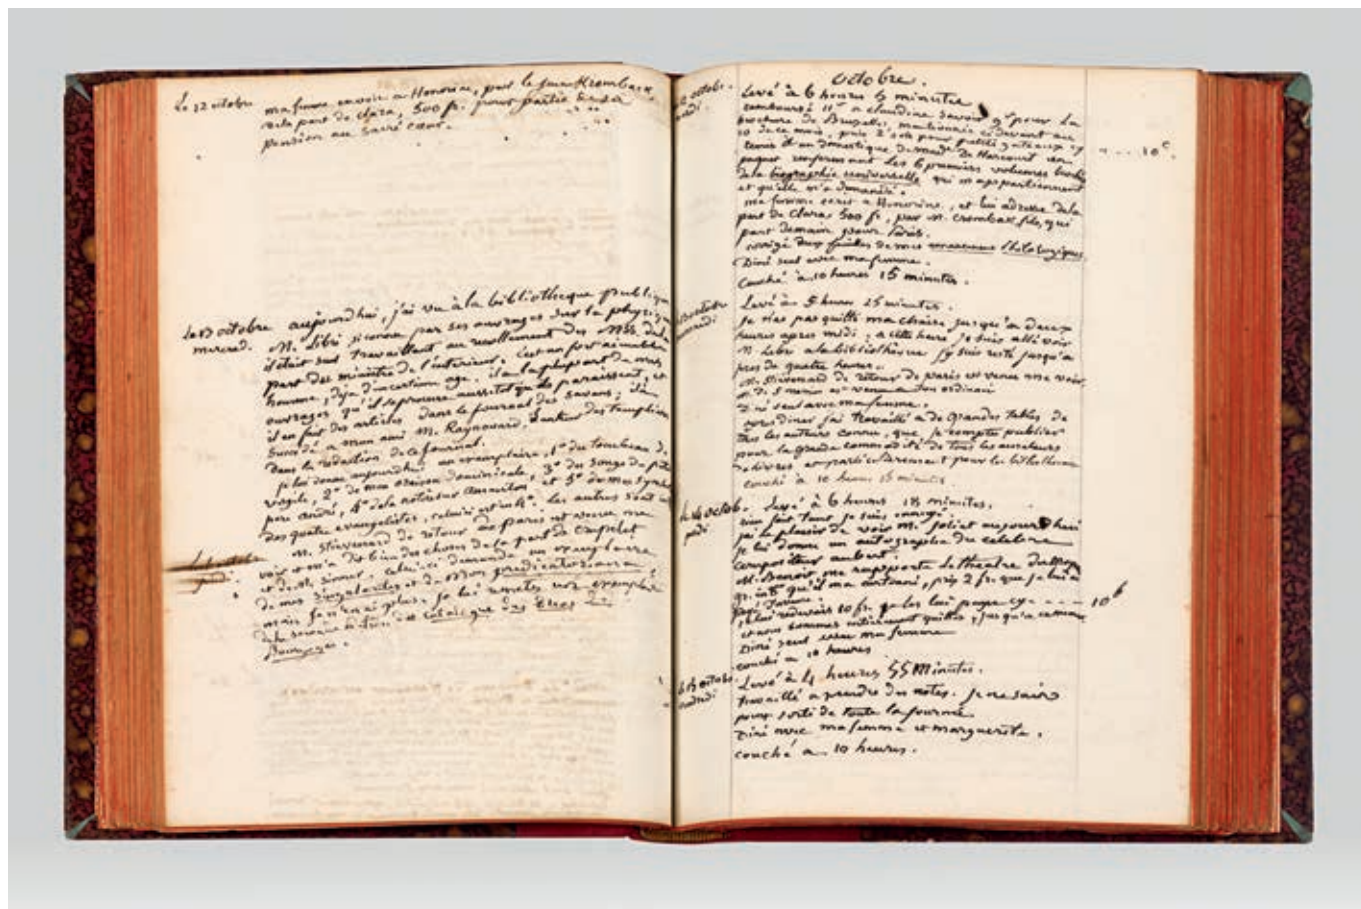 Le 12 octobre
ma femme envoie a Honorine, pour le sieur Krombach,
de la part de Clara, 500 fr. pour partie de sa
pension au sacré cœur.
Le 13 octobre
mercredi.
aujourd'hui, j'ai vu à la bibliotheque publique
M. Libri si connu par ses ouvrages sur la physique
il était seul travaillant au recollement des Mss. de la
part du ministre de l'interieur. C'est un fort aimable
homme, déja d'un certain age. il a la plupart de mes
ouvrages qu'il se procure aussitot qu'ils paraissent, et
il en fait des articles dans le journal des savans; il a
succédé a mon ami M. Raynouard, l'auteur des templiers
dans la rédaction de ce journal.
je lui donne aujourd'hui un exemplaire, 1° du tombeau de
virgile, 2° de mon oraison dominicale, 3° du songe de
pere andré, 4° de la notice sur et 5° de mes symboles
des quatre evangelistes, celui-ci est in 4°. les autres sont in
M. Stievenard de retour de paris est venu me
voir et m'a dit bien des choses de la part de Crapelet
et de celui-ci demande un exemplaire
de mes singularités et de mon predicatoriana,
mais je n'en ai plus. je lui un exemplaire
de la catalogue des Ducs de
Bourgogne.
jeudi.
octobre.
12 octobre.
mardi.
Levé à 6 heures 5 minutes
remboursé 11 a claudine savoir 9 pour la
brochure de Bruxelles, mentionnée ci devant au
10 de ce mois, puis 2 sols pour petits gateaux cy
- - - 10 c.
remis a un domestique de made de Harcourt un
paquet renfermant les 6 premiers volumes
de la biographie universelle qui m'appartiennent
et qu'elle m'a demandé.
ma femme ecrit a Honorine, et lui adresse de la
part de Clara 500 fr, par M. Crombac fils, qui
part demain pour Paris.
corrigé deux feuilles de mes nouveaux philologiques
Diné seul avec ma femme.
Couché à 10 heures 15 minutes.
13 octobre
mercredi
Levé à 5 heures 25 minutes.
Je n'ai pas quitté ma chaise jusqu'a deux
heures apres midi. a cette heure je suis allé voir
M Libri a la bibliotheque j'y suis resté jusqu'a
pres de quatre heures.
M. Stievenard de retour de paris est venu me voir
est venu a son ordinaire
Diné seul avec ma femme.
apres diner j'ai travaillé a de grandes tables de
tous les auteurs connus, que je compte publier
pour la grande commodité de tous les amateurs
de livres et particulierement pour les bibliothecaires
couché à 10 heures 15 minutes.
le 14 octob.
jeudi
Levé à 6 heures 18 minutes.
rien fait tant je suis enrugé.
j'ai le plaisir de voir M. Joliet aujourd'hui
je lui donne un autographe du celebre
compositeur aubert.
M. Benoit me rapporte le theatre
gr. in 8 qu'il m'a cartonné, prix 2 fr. que je lui ai
payé
je lui redevois 10 fr. que je lui paye cy - - - - 10 f
et nous sommes entierement quittes, jusqu'a ce moment
Diné seul avec ma femme
couché a 10 heures
15 octobre
vendredi
Levé à 4 heures 55 Minutes.
travaillé a prendre des notes. je ne suis
point sorti de toute la journée
Diné avec ma femme et marguerite.
couché a 10 heures.